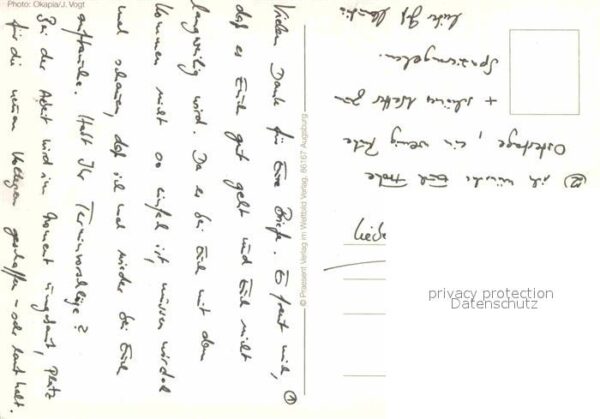 Photo: Okapia/J. Vogt
①
Vielen Dank für Eure Briefe. Es freut mich,
daß es Euch gut geht und Euch nicht
langweilig wird. Da es bei Euch mit dem
kommen nicht so einfach ist, müssen wir doch
mal schauen, daß ich mal wieder bei Euch
auftauche. Habt Ihr Terminvorschläge?
Bei der Arbeit wird im Moment umgebaut, Platz
für die neuen Kollegen geschaffen - sehr laut halt.
② ich wünsche Euch Frohe
Ostertage, ein wenig Ruhe
+ schönes Wetter zum
Spazierengehen.
Liebe
© Praesent Verlag im Weltbild Verlag, 86167 Augsburg
privacy protection
Datenschutz